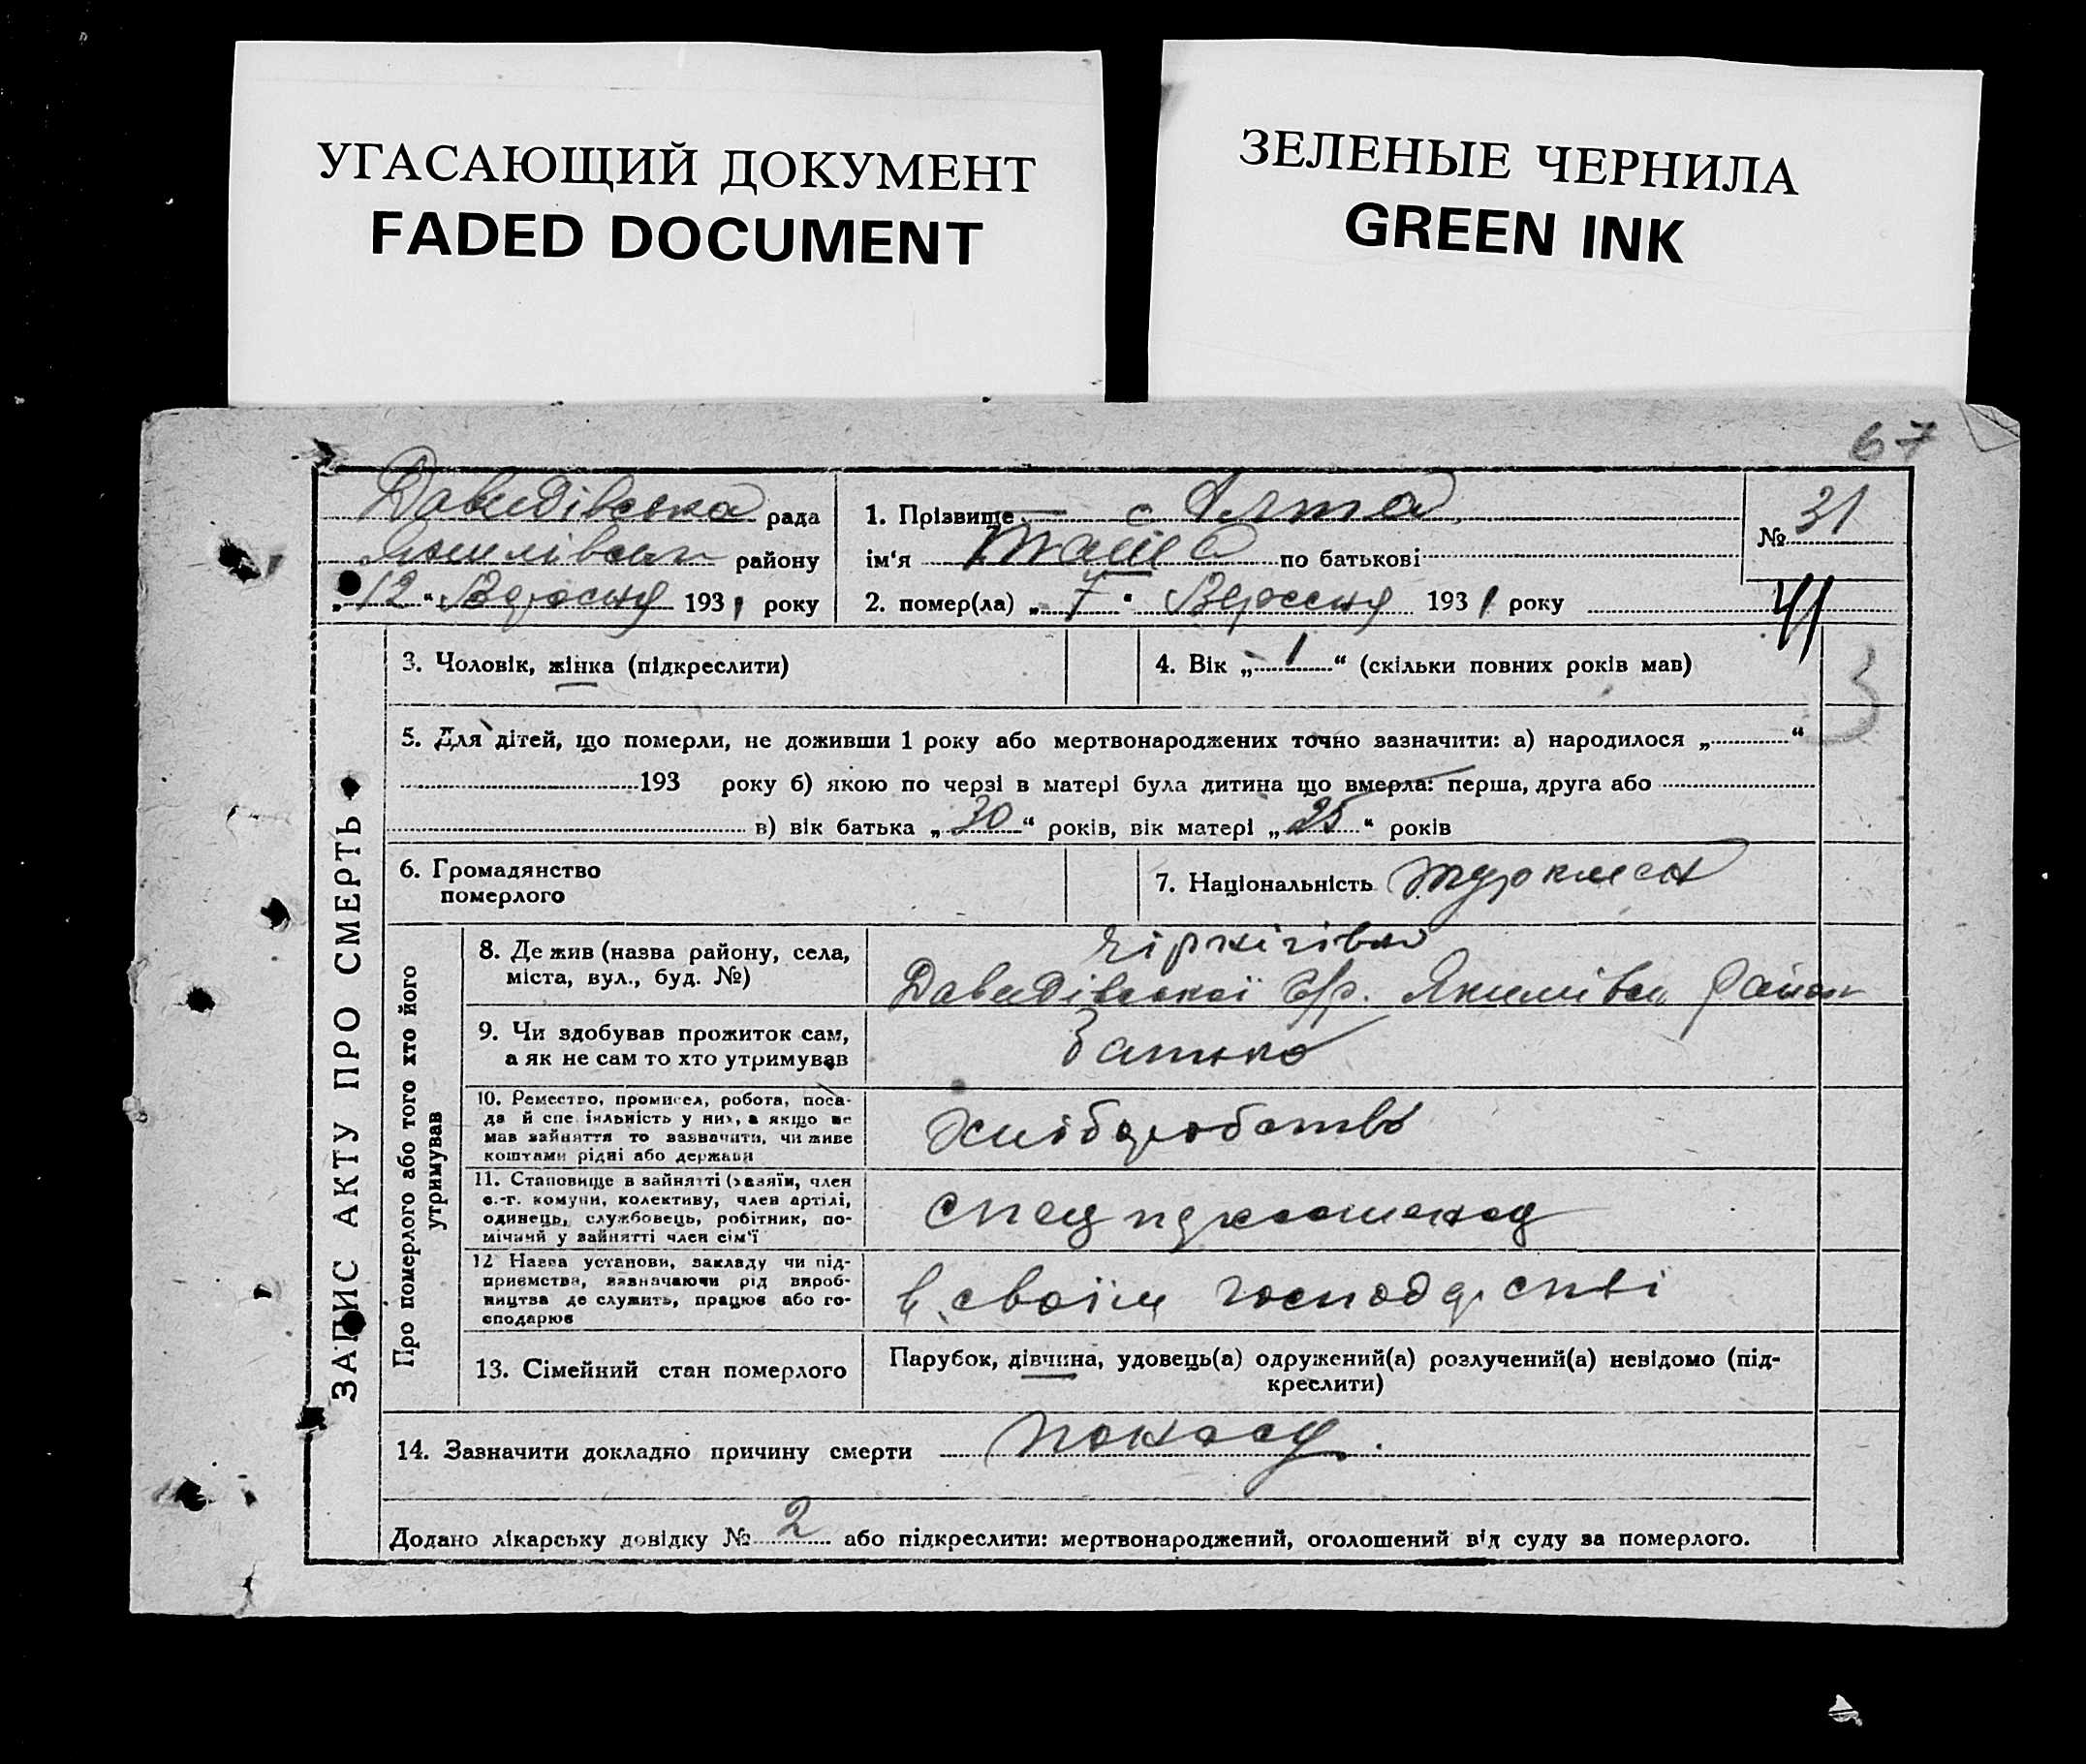 УГАСАЮЩИЙ ДОКУМЕНТ
FADED DOCUMENT
ЗЕЛЕНЫЕ ЧЕРНИЛА
GREEN INK
67
Давидівська рада
району
„12“ Вересня 1931 року
1. Прізвище
ім'я по батькові
2. помер(ла) „7“ Вересня 1931 року
№ 31
41
3
ЗАПИС АКТУ ПРО СМЕРТЬ
3. Чоловік, жінка (підкреслити)
4. Вік „1“ (скільки повних років мав)
5. Для дітей, що померли, не доживши 1 року або мертвонароджених точно зазначити: а) народилося „ “
193 року б) якою по черзі в матері була дитина що вмерла: перша, друга або
в) вік батька „30“ років, вік матері „25“ років
6. Громадянство
померлого
7. Національність туркмен
Про померлого або того хто його
утримував
8. Де жив (назва району, села,
міста, вул., буд. №)
Давидівської с/р. Якимівськ район
9. Чи здобував прожиток сам,
а як не сам то хто утримував
Батько
10. Ремество, промисел, робота, поса-
да й спеціяльність у них, а якщо не
мав зайняття то зазначити, чи живе
коштами рідні або держави
хліборобство
11. Становище в зайнятті (хазяїн, член
с.-г. комуни, колективу, член артілі,
одинець, службовець, робітник, по-
мічний у зайнятті член сім'ї
12 Назва установи, закладу чи під-
приємства, зазначаючи рід вироб-
ництва де служить, працює або го-
сподарює
в своїм господрстві
13. Сімейний стан померлого
Парубок, дівчина, удовець(а) одружений(а) розлучений(а) невідомо (під-
креслити)
14. Зазначити докладно причину смерти
Додано лікарську довідку № 2 або підкреслити: мертвонароджений, оголошений від суду за померлого.